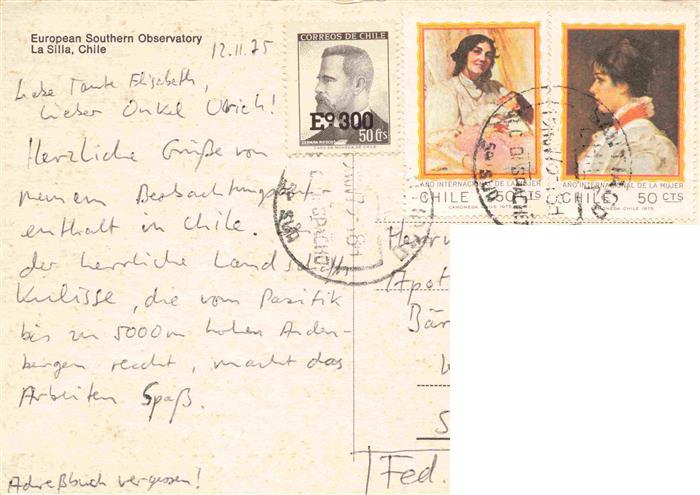 European Southern Observatory
La Silla, Chile
12.11.75
Liebe Tante Elisabeth,
Lieber Onkel Ulrich!
Herzliche Grüße von
meinem Beobachtungsauf-
enthalt in Chile.
der herrliche Landschafts
Kulisse, die vom Pazifik
bis zu 5000m hohen Anden-
bergen reicht, macht das
Arbeiten Spaß.
Adreßbuch vergessen!
CORREOS DE CHILE
Eº300
50 Cts
CASA DE MONEDA DE CHILE
AÑO INTERNACIONAL DE LA MUJER
CHILE 50 CTS
CAMONEDA CHILE 1975
AÑO INTERNACIONAL DE LA MUJER
CHILE 50 CTS
CAMONEDA CHILE 1975
Herrn
Apot
Bär
S
Fed.